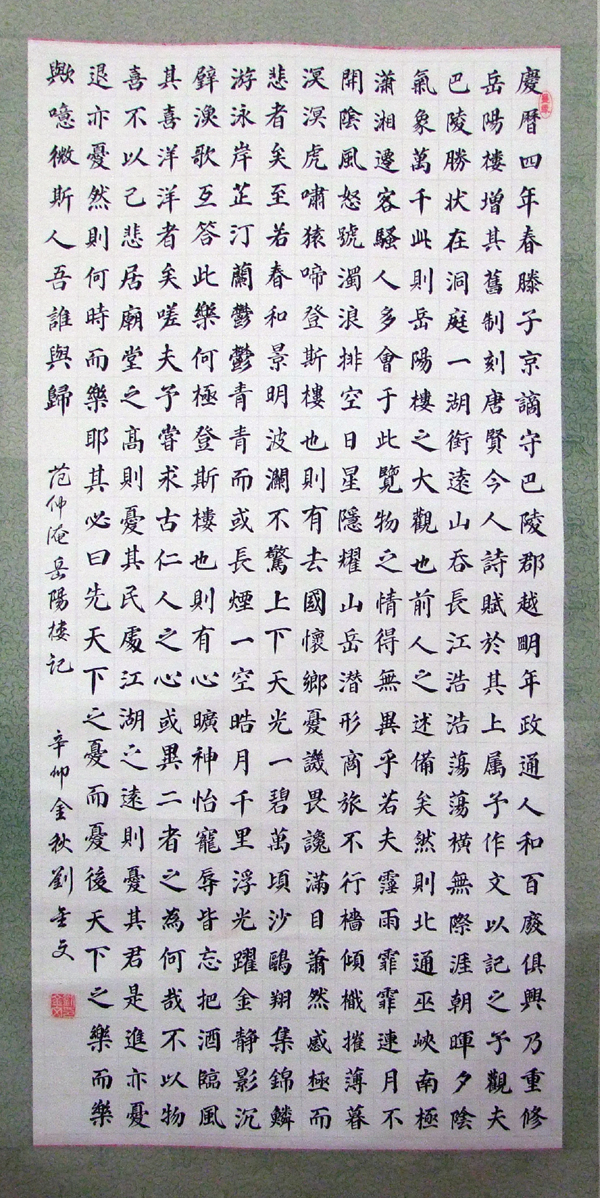 慶曆四年春滕子京謫守巴陵郡越明年政通人和百廢俱興乃重修
岳陽樓增其舊制刻唐賢今人詩賦於其上属予作文以記之予觀夫
巴陵勝状在洞庭一湖銜遠山吞長江浩浩蕩蕩橫無際涯朝暉夕陰
氣象萬千此則岳陽樓之大觀也前人之述備矣然則北通巫峽南極
瀟湘遷客騷人多會于此覽物之情得無異乎若夫霪雨霏霏連月不
開陰風怒號濁浪排空日星隱耀山岳潜形商旅不行檣傾檝摧薄暮
溟溟虎嘯猿啼登斯樓也則有去國懷鄉憂譏畏讒滿目蕭然感極而
悲者矣至若春和景明波瀾不驚上下天光一碧萬頃沙鷗翔集錦鱗
游泳岸芷汀蘭鬱鬱青青而或長煙一空皓月千里浮光躍金静影沉
璧漁歌互答此樂何極登斯樓也則有心曠神怡寵辱皆忘把酒臨風
其喜洋洋者矣嗟夫予嘗求古仁人之心或異二者之為何哉不以物
喜不以己悲居廟堂之高則憂其民處江湖之遠則憂其君是進亦憂
退亦憂然則何時而樂耶其必曰先天下之憂而憂後天下之樂而樂
歟噫微斯人吾誰與歸 范仲淹岳陽樓記 辛卯金秋劉文